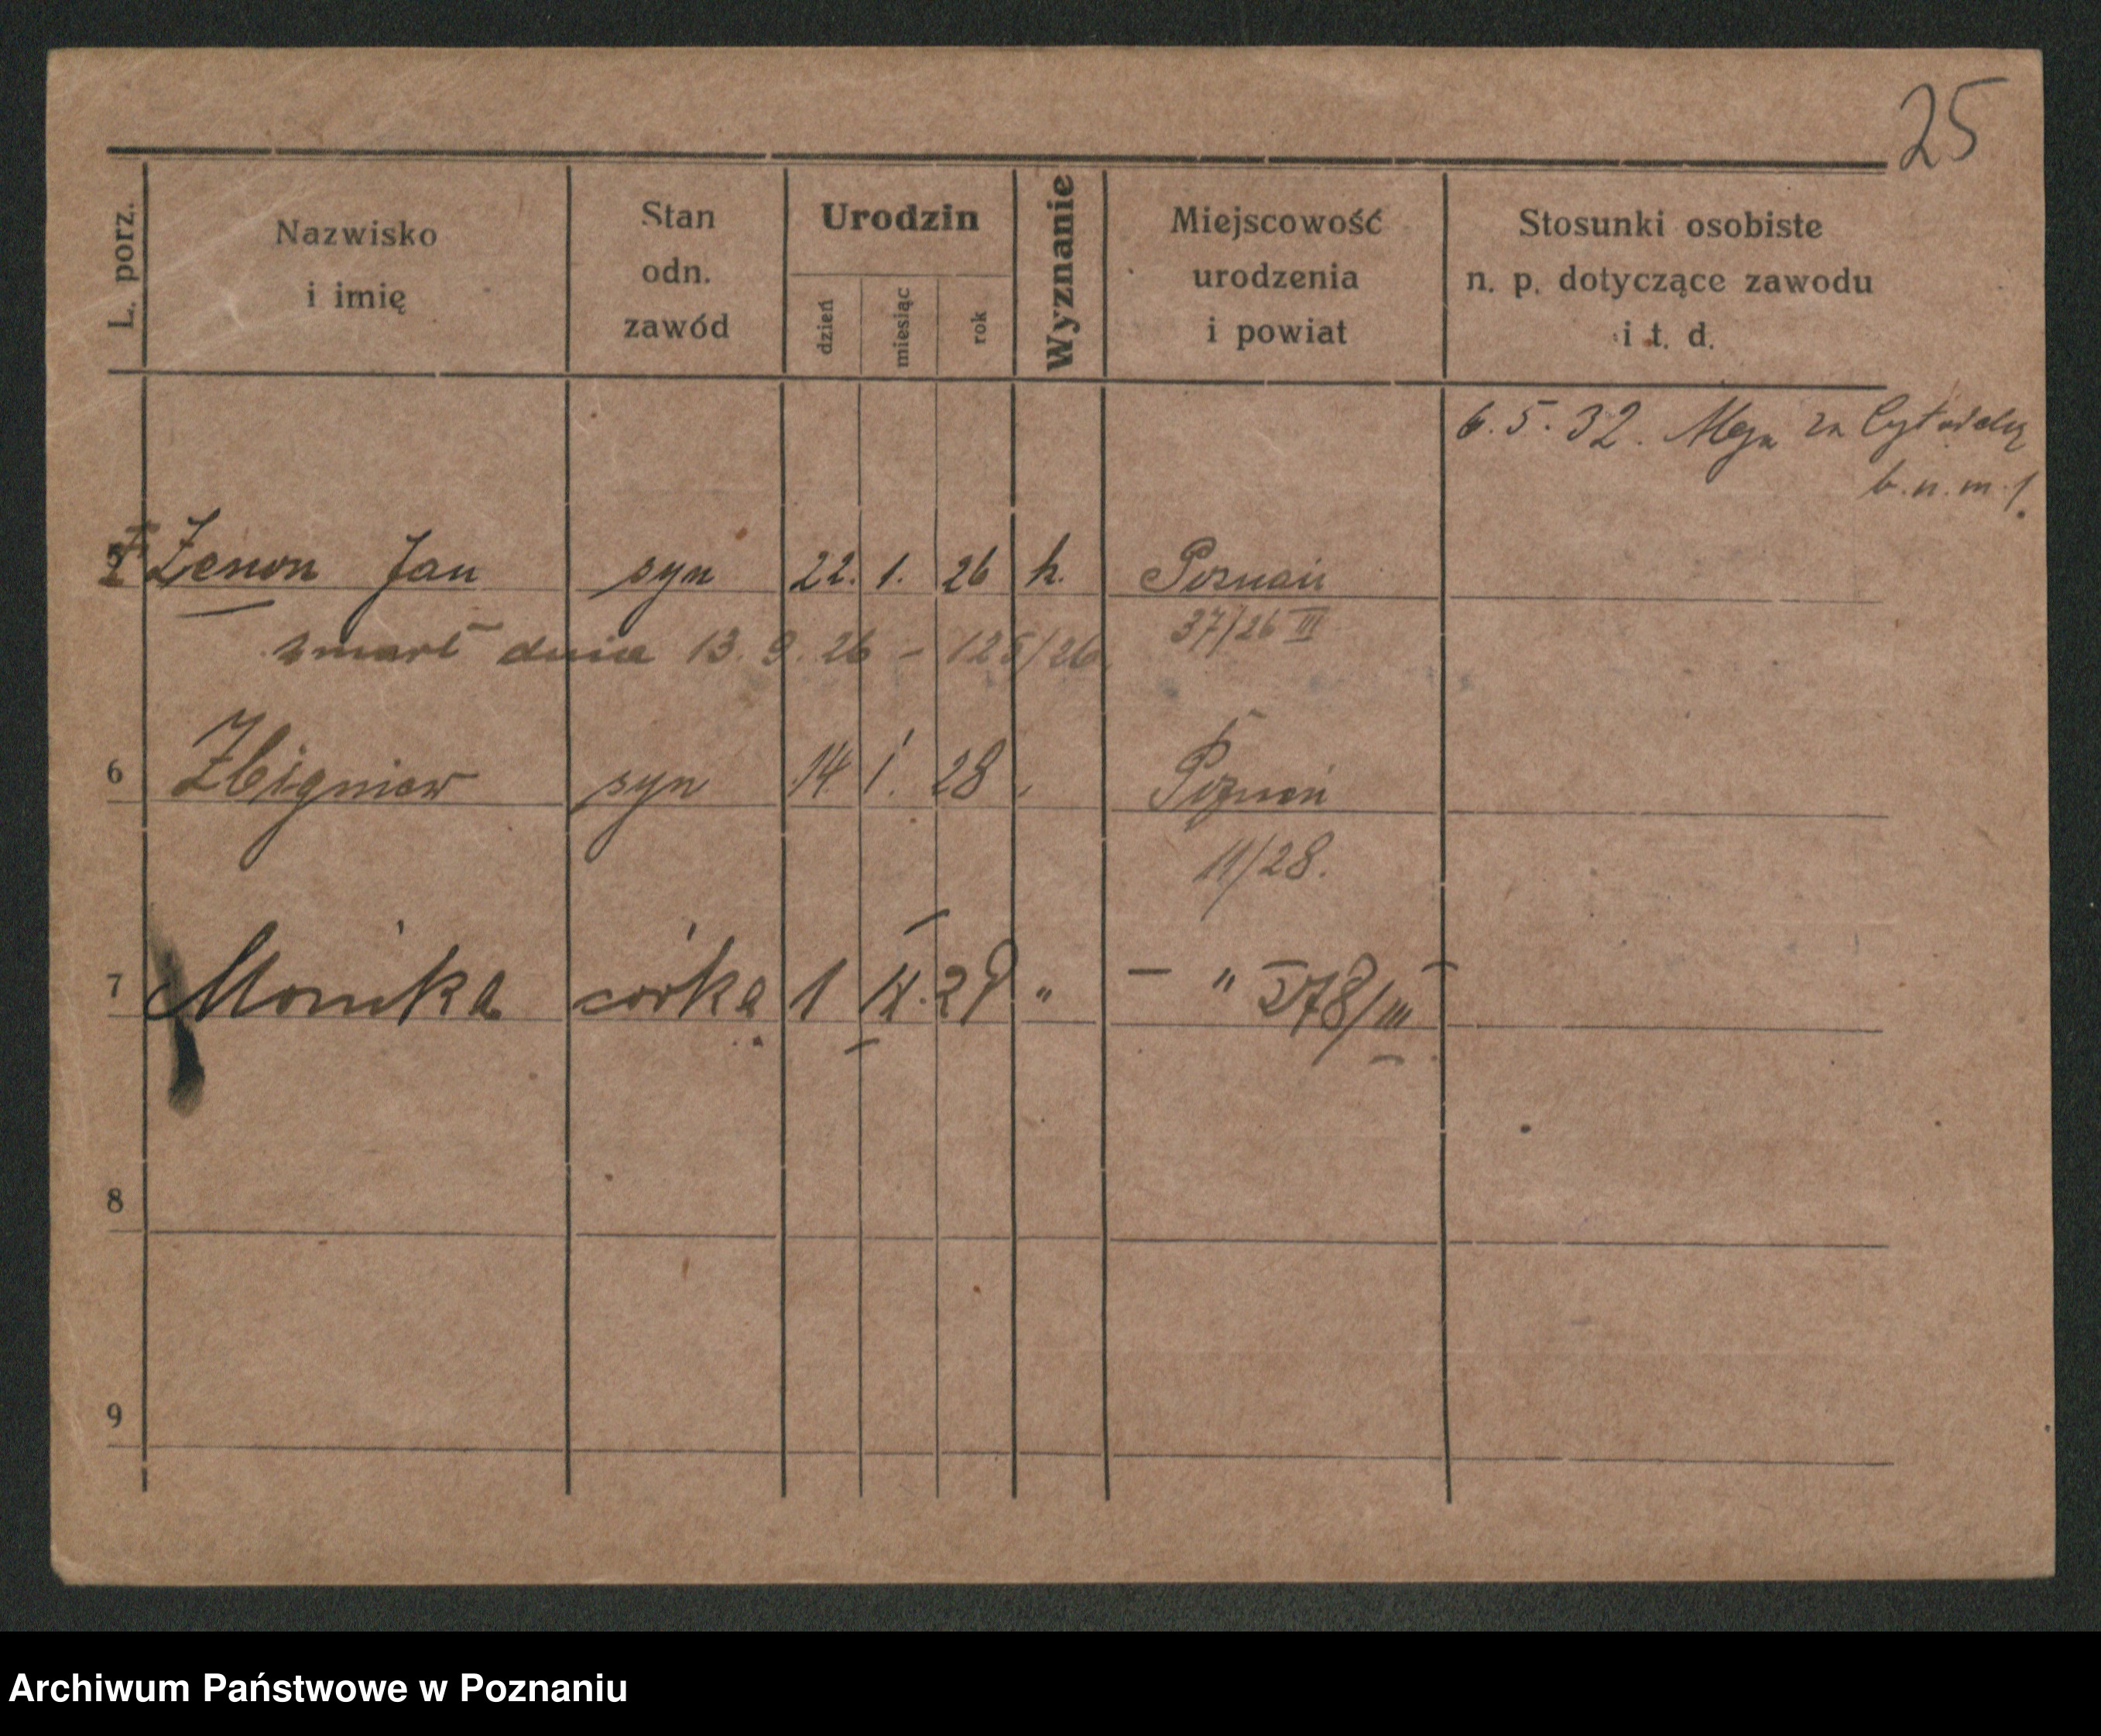 25
L. porz.
Nazwisko
i imię
Stan
odn.
zawód
Urodzin
dzień
miesiąc
rok
Wyznanie
Miejscowość
urodzenia
i powiat
Stosunki osobiste
n. p. dotyczące zawodu
i t. d.
6. 5. 32. za Cytadelą
b. n. m. 1.
Zenon Jan syn 22. 1. 26 k. Poznań
zmarł dnia 13. 9. 26 – 125/26. 37/26 III
6 Zbigniew syn 14. 1. 28 Poznań
11/28.
7 Monika córka 1 29 " — " 578/III
8
9
Archiwum Państwowe w Poznaniu